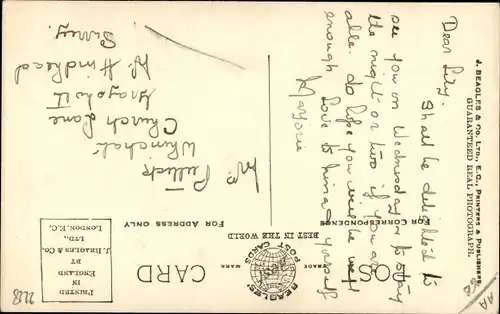 J. BEAGLES & CO. LTD., E.C., PRINTERS & PUBLISHERS.
GUARANTEED REAL PHOTOGRAPH.
POST CARD
BEAGLES'
POST CARDS
TRADE MARK
BEST IN THE WORLD
FOR CORRESPONDENCE
FOR ADDRESS ONLY
PRINTED
IN
ENGLAND
BY
J. BEAGLES & CO.
LTD.
LONDON, E.C.
Dear Lily.
Shall be delighted to
see you on Wednesday to stay
the night or two if you are
able. do hope you will be well
enough love to him and yourself
Marjorie
Church Lane
Grayshott
Nr Hindhead
Surrey.